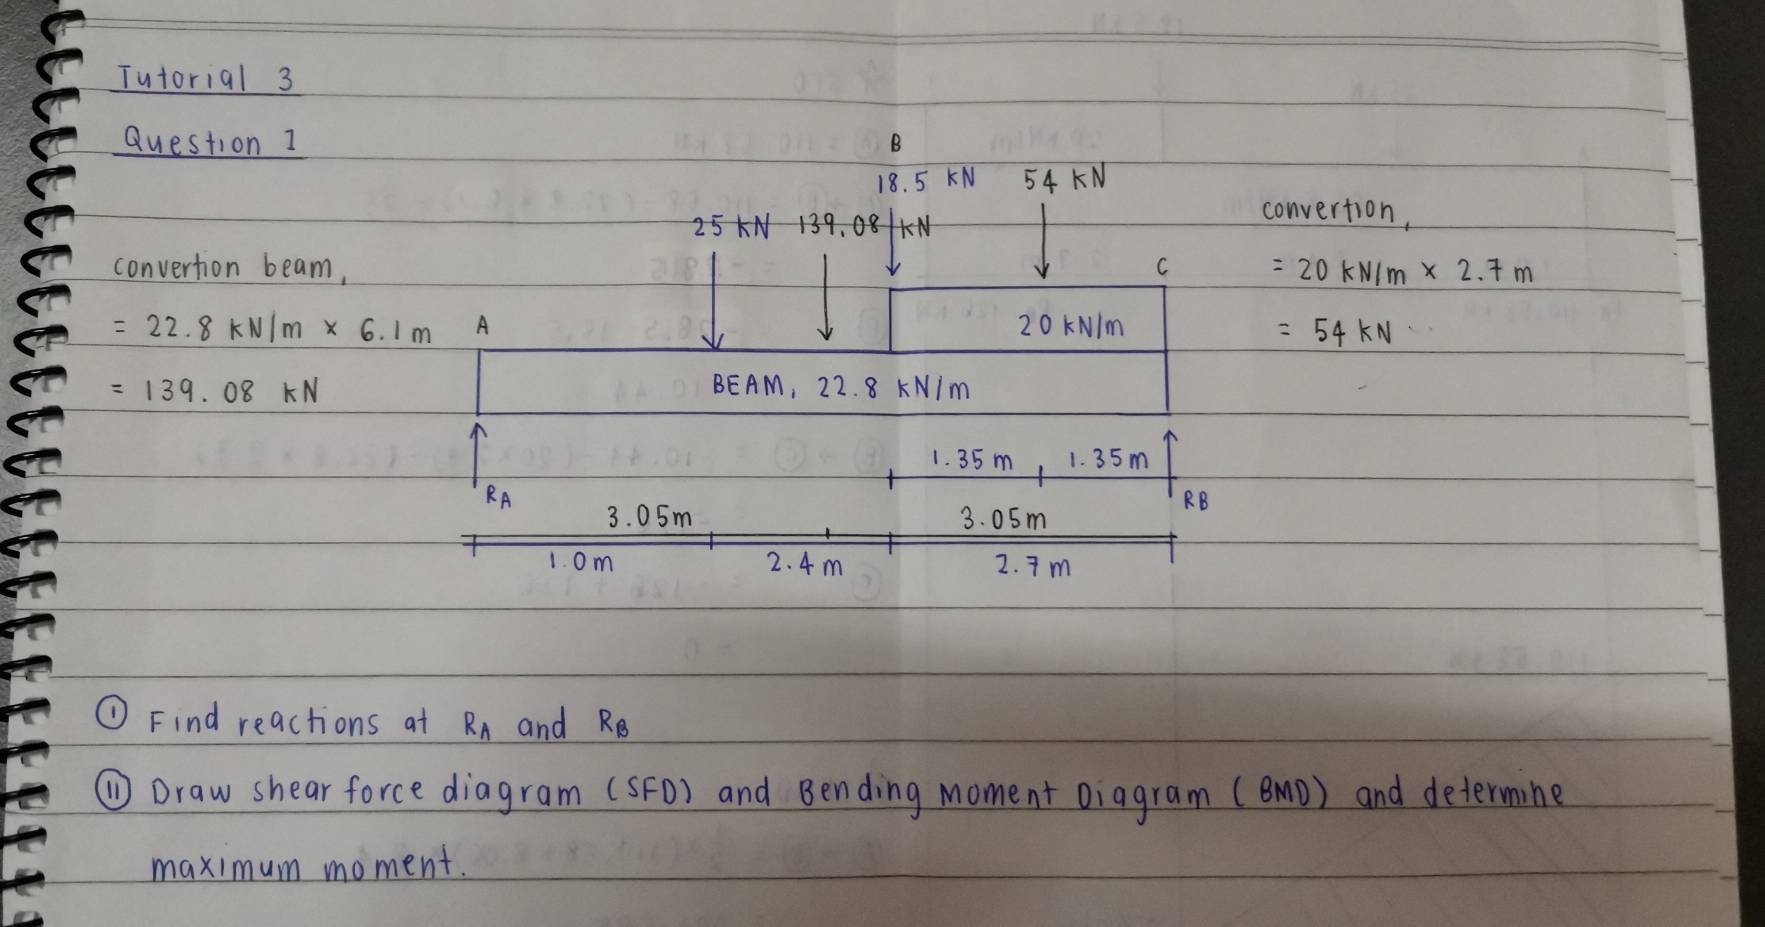 Tutorial 3
Question 1
B
18.5 kN 54 kN
25 kN 139.08 kN
convertion,
= 20 kN/m × 2.7 m
= 54 kN
convertion beam,
= 22.8 kN/m × 6.1 m
= 139.08 kN
A
C
20 kN/m
BEAM, 22.8 kN/m
1.35 m 1.35 m
RA RB
3.05m 3.05m
1.0 m 2.4 m 2.7 m
(i) Find reactions at RA and RB
(ii) Draw shear force diagram (SFD) and Bending Moment Diagram (BMD) and determine
maximum moment.